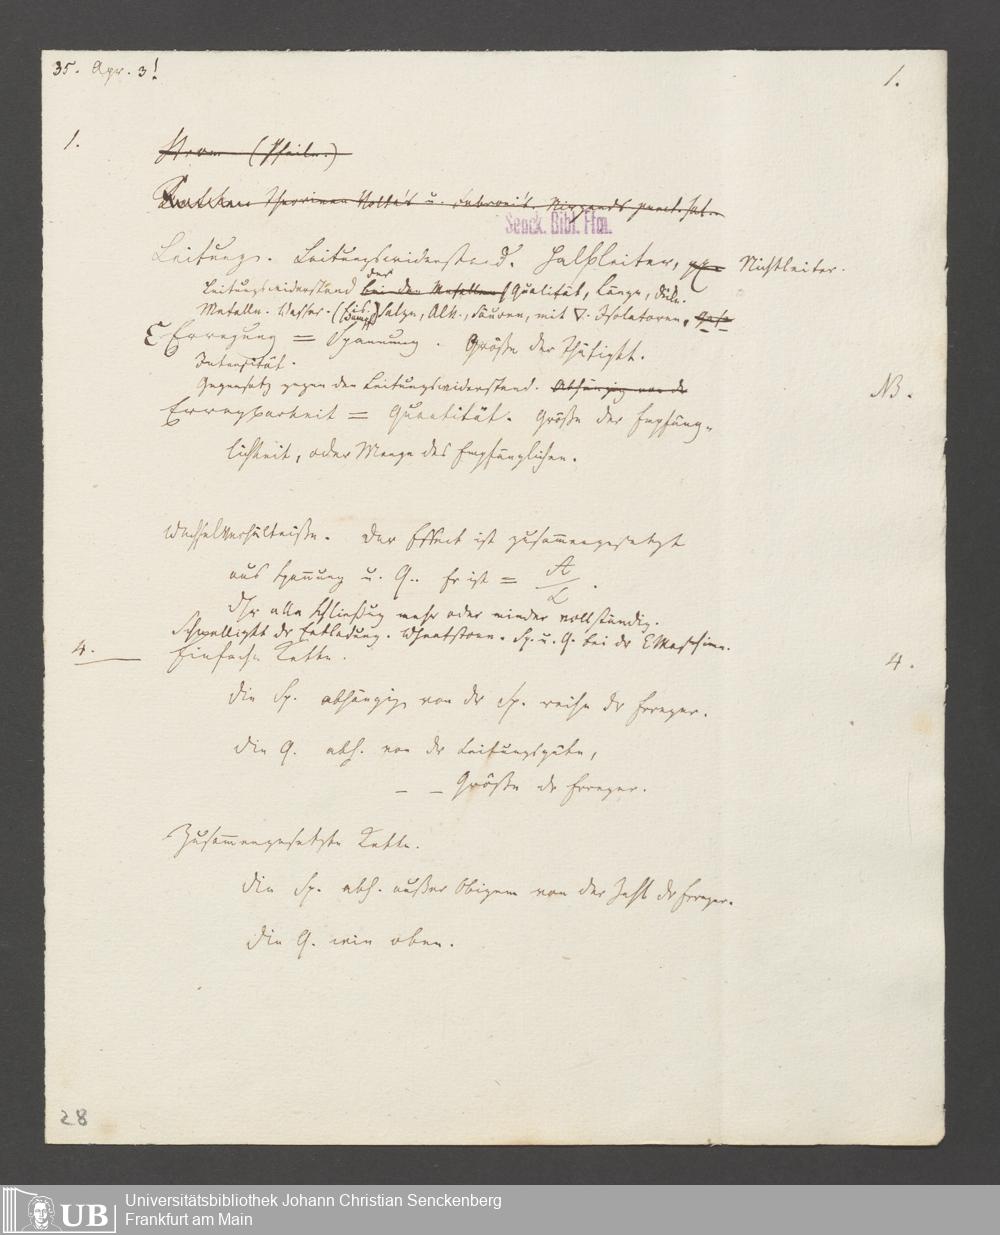 35. Apr. 3!
1.
1.
Strom (Pfeile.)
Theorieen Volta's u. Fabroni's. Nirgends
Senck. Bibl. Ffm.
Leitung. Leitungswiderstand. Halbleiter, Nichtleiter.
Leitungswiderstand bei den Metallen der Qualität, Länge, Dicke.
Metalle. Wasser. (Eis, Dampf) Salze, Alk., Säuren, mit ▽. Isolatoren, Gase
E Erregung = Spannung. Größe der Thätigkt.
Intensität.
Gegensatz gegen den Leitungswiderstand. Abhängig von de
NB.
Erregbarkeit = Quantität. Größe der Empfäng-
lichkeit, oder Menge des Empfänglichen.
Wechselverhältniße. Der Effect ist zusammengesetzt
aus Spannung u. Q.. Er ist = A/L.
Ihr alle Schließug mehr oder minder vollständig.
Schnelligkt dr Entladung. Wheatstone. Sp. u. Q. bei dr EMaschine.
4.
Einfache Kette.
4.
die Sp. abhängig von dr Sp. reihe dr Erreger.
die Q. abh. von dr Leitungsgüte,
_ _ Größe dr Erreger.
Zusammengesetzte Kette.
die Sp. abh. außer Obigem von der Zahl dr Erreger.
die Q. wie oben.
28
UB
Universitätsbibliothek Johann Christian Senckenberg
Frankfurt am Main